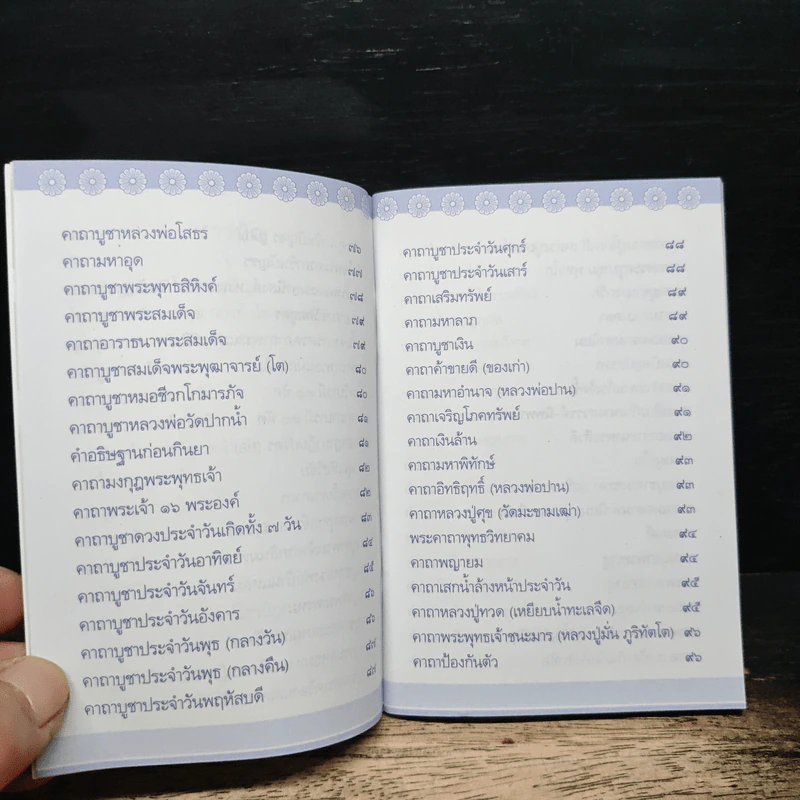 คาถาบูชาหลวงพ่อโสธร ๗๖
คาถามหาอุด ๗๗
คาถาบูชาพระพุทธสิหิงค์ ๗๘
คาถาบูชาพระสมเด็จ ๗๙
คาถาอาราธนาพระสมเด็จ ๗๙
คาถาบูชาสมเด็จพระพุฒาจารย์ (โต) ๘๐
คาถาบูชาหมอชีวกโกมารภัจ ๘๐
คาถาบูชาหลวงพ่อวัดปากน้ำ ๘๑
คำอธิษฐานก่อนกินยา ๘๑
คาถามงกุฎพระพุทธเจ้า ๘๒
คาถาพระเจ้า ๑๖ พระองค์ ๘๒
คาถาบูชาดวงประจำวันเกิดทั้ง ๗ วัน ๘๓
คาถาบูชาประจำวันอาทิตย์ ๘๔
คาถาบูชาประจำวันจันทร์ ๘๕
คาถาบูชาประจำวันอังคาร ๘๖
คาถาบูชาประจำวันพุธ (กลางวัน) ๘๖
คาถาบูชาประจำวันพุธ (กลางคืน) ๘๗
คาถาบูชาประจำวันพฤหัสบดี ๘๗
คาถาบูชาประจำวันศุกร์ ๘๘
คาถาบูชาประจำวันเสาร์ ๘๘
คาถาเสริมทรัพย์ ๘๙
คาถามหาลาภ ๘๙
คาถาบูชาเงิน ๙๐
คาถาค้าขายดี (ของเก่า) ๙๐
คาถามหาอำนาจ (หลวงพ่อปาน) ๙๑
คาถาเจริญโภคทรัพย์ ๙๑
คาถาเงินล้าน ๙๒
คาถามหาพิทักษ์ ๙๓
คาถาอิทธิฤทธิ์ (หลวงพ่อปาน) ๙๓
คาถาหลวงปู่ศุข (วัดมะขามเฒ่า) ๙๓
พระคาถาพุทธวิทยาคม ๙๔
คาถาพญายม ๙๔
คาถาเสกน้ำล้างหน้าประจำวัน ๙๕
คาถาหลวงปู่ทวด (เหยียบน้ำทะเลจืด) ๙๕
คาถาพระพุทธเจ้าชนะมาร (หลวงปู่มั่น ภูริทัตโต) ๙๖
คาถาป้องกันตัว ๙๖